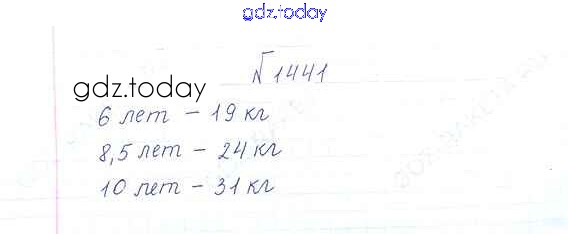 gdz.today
№1441
gdz.today
6 лет – 19 кг
8,5 лет – 24 кг
10 лет – 31 кг